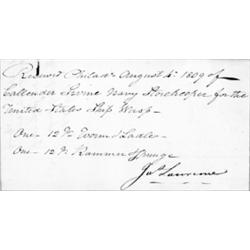 Received Philad.a August 4th 1809 of
Callender Irvine Navy Storekeeper for the
United States Ship Wasp—
One— 12 Pr Worm & Ladle—
One— 12 Pr Rammer & Spunge
Jas Lawrence